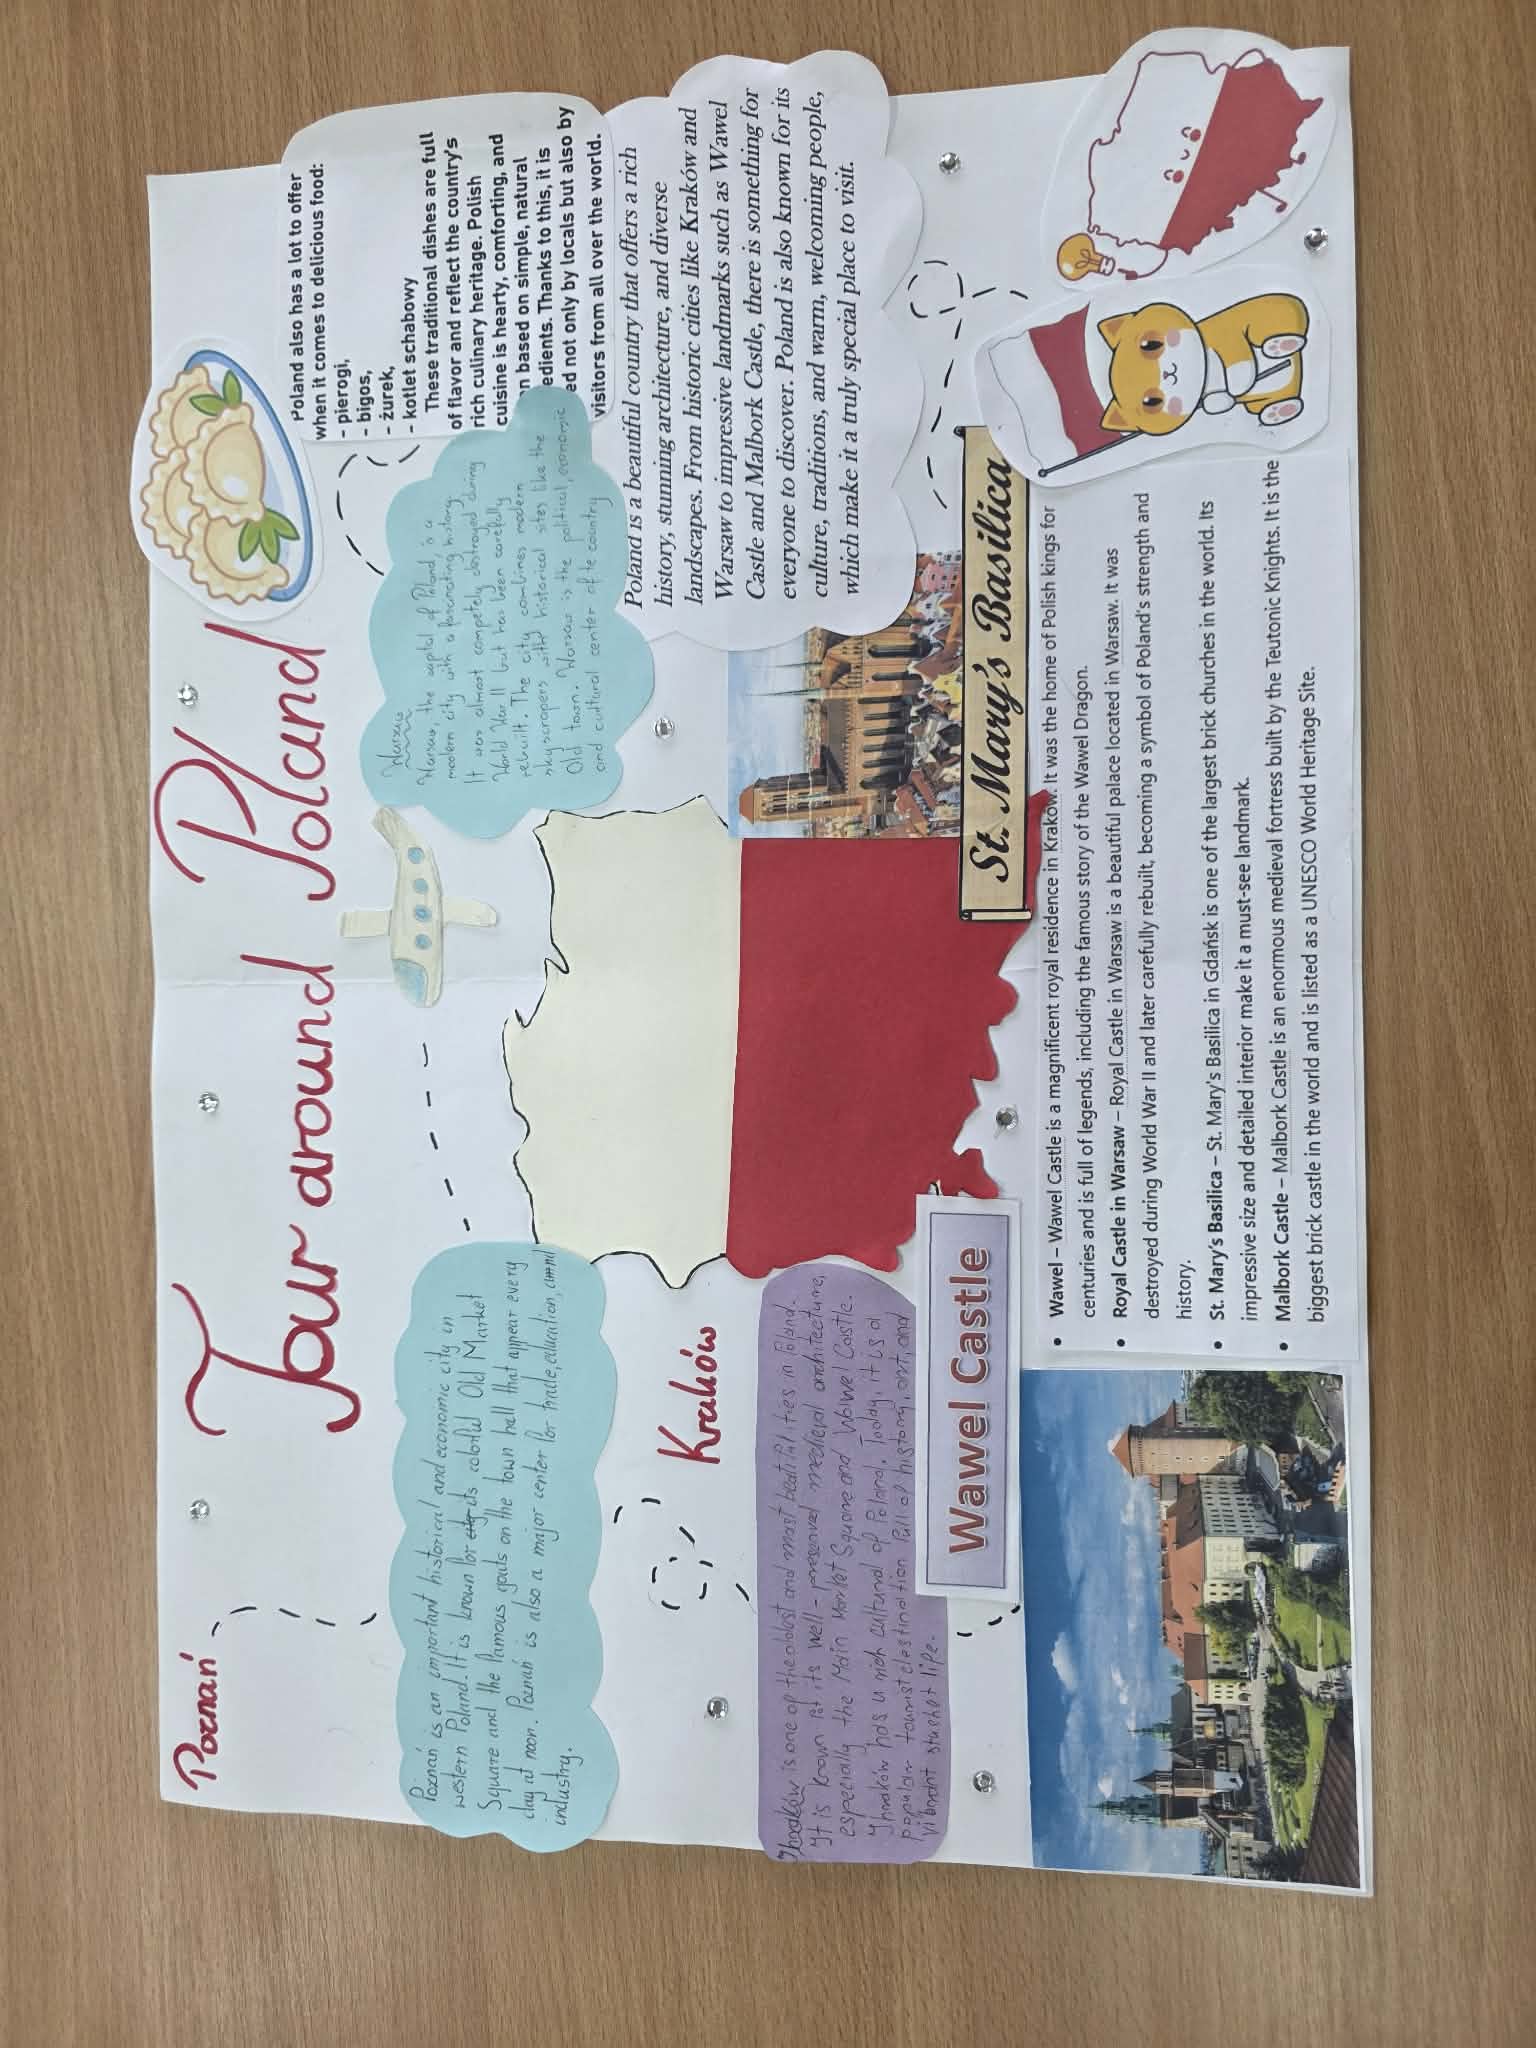 Tour around Poland
Poznań
Poznań is an important historical and economic city in
western Poland. It is known for city its colorful Old Market
Square and the famous goats on the town hall that appear every
day at noon. Poznań is also a major center for trade, education, and
industry.
Kraków
is one of the oldest and most beautiful cities in Poland.
It is known for its well-preserved medieval architecture,
especially the Main Market Square and Wawel Castle.
has a rich cultural of Poland. Today, it is a
popular tourist destination full of history, art, and
vibrant life.
Wawel Castle
Warsaw
Warsaw, the capital of Poland, is a
modern city with a fascinating history.
It was almost competely destroyed during
World War II but has been carefully
rebuilt. The city combines modern
skyscrapers with historical sites like the
Old town. Warsaw is the political, economic
and cultural center of te country
Poland also has a lot to offer
when it comes to delicious food:
- pierogi,
- bigos,
- żurek,
- kotlet schabowy
These traditional dishes are full
of flavor and reflect the country's
rich culinary heritage. Polish
cuisine is hearty, comforting, and
n based on simple, natural
edients. Thanks to this, it is
ed not only by locals but also by
visitors from all over the world.
Poland is a beautiful country that offers a rich
history, stunning architecture, and diverse
landscapes. From historic cities like Kraków and
Warsaw to impressive landmarks such as Wawel
Castle and Malbork Castle, there is something for
everyone to discover. Poland is also known for its
culture, traditions, and warm, welcoming people,
which make it a truly special place to visit.
St. Mary's Basilica
• Wawel – Wawel Castle is a magnificent royal residence in Kraków. It was the home of Polish kings for
centuries and is full of legends, including the famous story of the Wawel Dragon.
• Royal Castle in Warsaw – Royal Castle in Warsaw is a beautiful palace located in Warsaw. It was
destroyed during World War II and later carefully rebuilt, becoming a symbol of Poland's strength and
history.
• St. Mary's Basilica – St. Mary's Basilica in Gdańsk is one of the largest brick churches in the world. Its
impressive size and detailed interior make it a must-see landmark.
• Malbork Castle – Malbork Castle is an enormous medieval fortress built by the Teutonic Knights. It is the
biggest brick castle in the world and is listed as a UNESCO World Heritage Site.